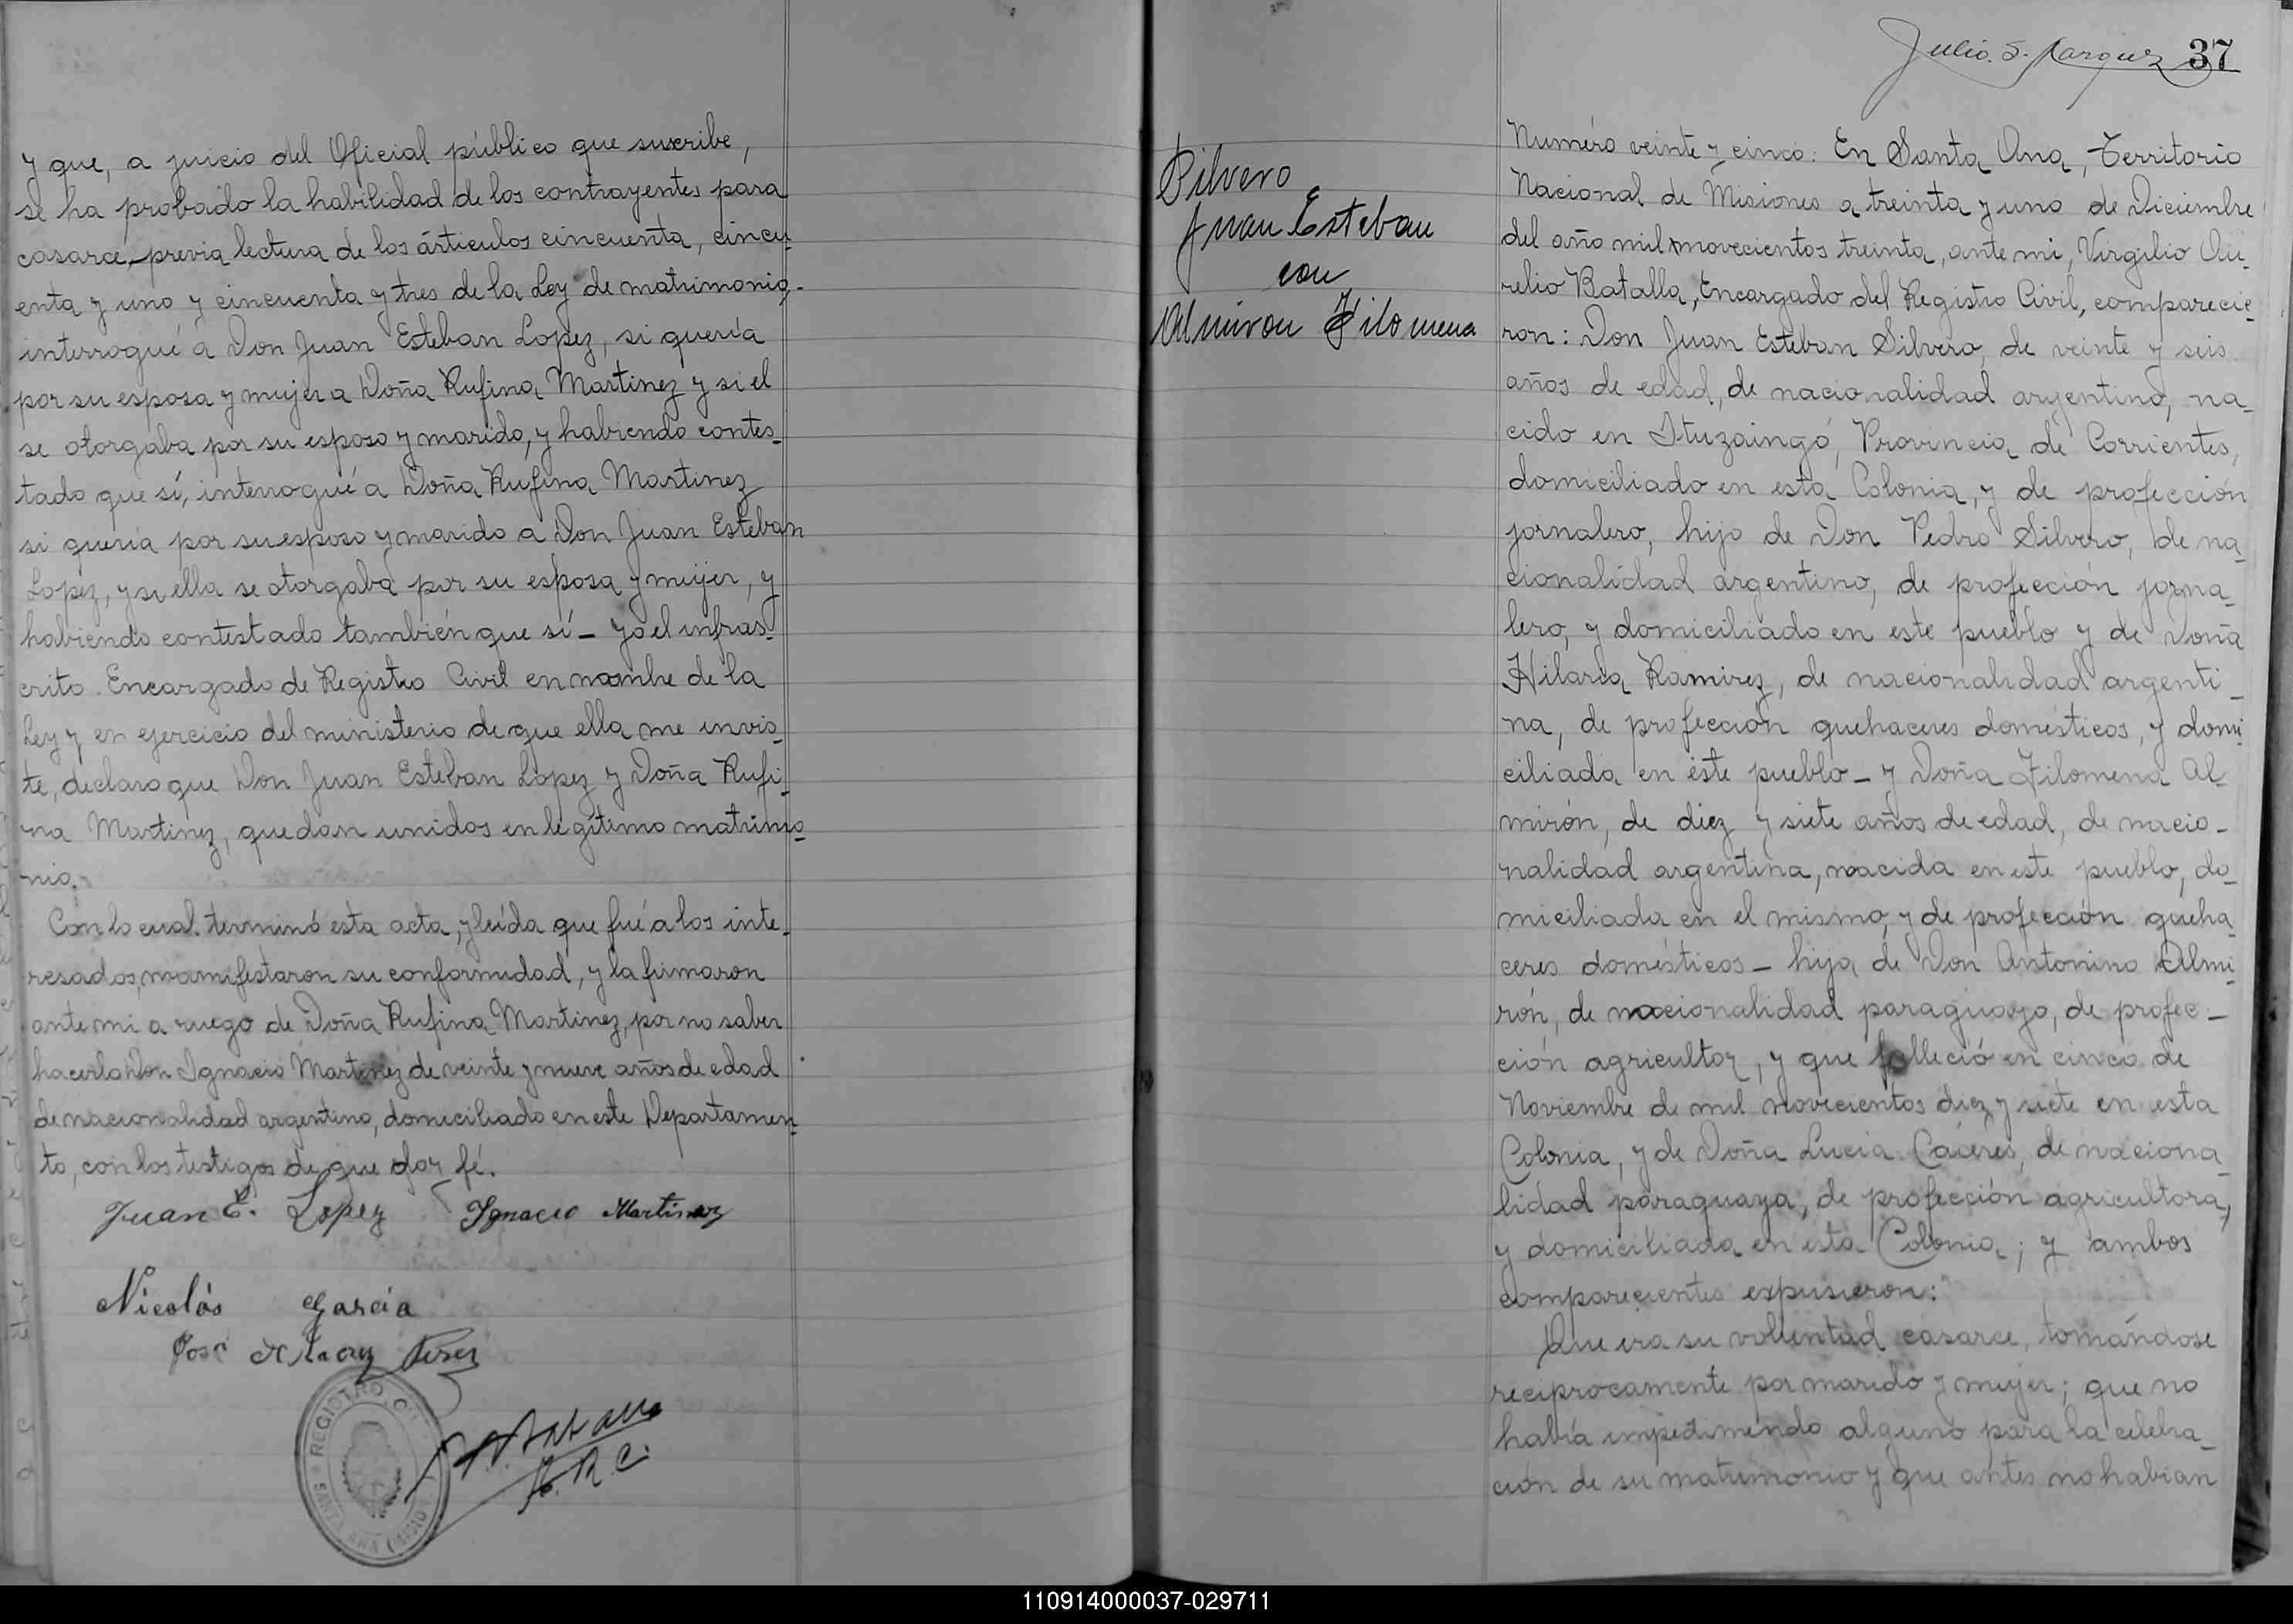 y que, a juicio del Oficial público que suscribe,
se ha probado la habilidad de los contrayentes para
casarce, previa lectura de los ártículos cincuenta, cincu-
enta y uno y cincuenta y tres de la Ley de matrimonio,-
interrogué á Don Juan Esteban Lopez, si quería
por su esposa y mujer a Doña Rufina Martinez y si el
se otorgaba por su esposo y marido, y habiendo contes-
tado que sí, interrogué a Doña Rufina Martinez
si quería por su esposo y marido a Don Juan Esteban
Lopez, y si ella se otorgaba por su esposa y mujer, y
habiendo contestado también que sí - yo el infras-
crito Encargado de Registro Civil en nombre de la
Ley y en ejercicio del ministerio de que ella me invis-
te, declaro que Don Juan Esteban Lopez y Doña Rufi-
na Martinez, quedan unidos en legítimo matrimo-
nio.
Con lo cual terminó esta acta, y leída que fué a los inte-
resados, manifestaron su conformidad, y la firmaron
ante mi a ruego de Doña Rufina Martinez, por no saber
hacerlo Don Ignacio Martinez de veinte y nueve años de edad
de nacionalidad argentino, domiciliado en este Departamen-
to, con los testigos de que doy fé.
Juan E. Lopez Ignacio Martinez
Nicolás Garcia
José Perez
REGISTRO CI
SANTA ANA
E. R. C.
Julio. S. Marquez 37
Silvero
Juan Esteban
con
Almiron Filomena
Numéro veinte y cinco: En Santa Ana, Territorio
Nacional de Misiones a treinta y uno de Diciembre
del año mil novecientos treinta, ante mi, Virgilio Au-
relio Batalla, Encargado del Registro Civil, comparecie-
ron: Don Juan Esteban Silvero, de veinte y seis
años de edad, de nacionalidad argentino, na-
cido en Ituzaingó, Provincia de Corrientes,
domiciliado en esta Colonia, y de profección
jornalero, hijo de Don Pedro Silvero, de na-
cionalidad argentino, de profección jorna-
lero, y domiciliado en este pueblo y de Doña
Hilaria Ramirez, de nacionalidad argenti-
na, de profección quehaceres domésticos, y domi-
ciliada en éste pueblo - y Doña Filomena Al-
mirón, de diez y siete años de edad, de nacio-
nalidad argentina, nacida en este pueblo, do-
miciliada en el mismo, y de profección queha-
ceres domésticos - hija de Don Antonino Almi-
rón, de nacionalidad paraguayo, de profec-
ción agricultor, y que falleció en cinco de
Noviembre de mil novecientos diez y siete en esta
Colonia, y de Doña Lucia Cáceres, de naciona-
lidad paraguaya, de profección agricultora,
y domiciliada en esta Colonia; y ambos
comparecientes expusieron:
Que era su voluntad casarce, tomándose
reciprocamente por marido y mujer; que no
había impedimendo alguno para la celebra-
ción de su matrimonio y que antes no habian
110914000037-029711